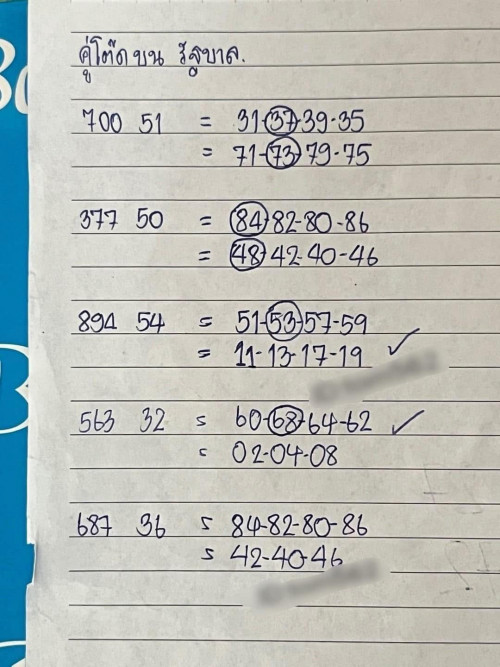 คู่โต๊ดบน รัฐบาล.
700 51 = 31-37-39-35
= 71-73-79-75
377 50 = 84-82-80-86
= 48-42-40-46
894 54 = 51-53-57-59
= 11-13-17-19 ✓
563 32 = 60-68-64-62 ✓
= 02-04-08
687 36 = 84-82-80-86
= 42-40-46